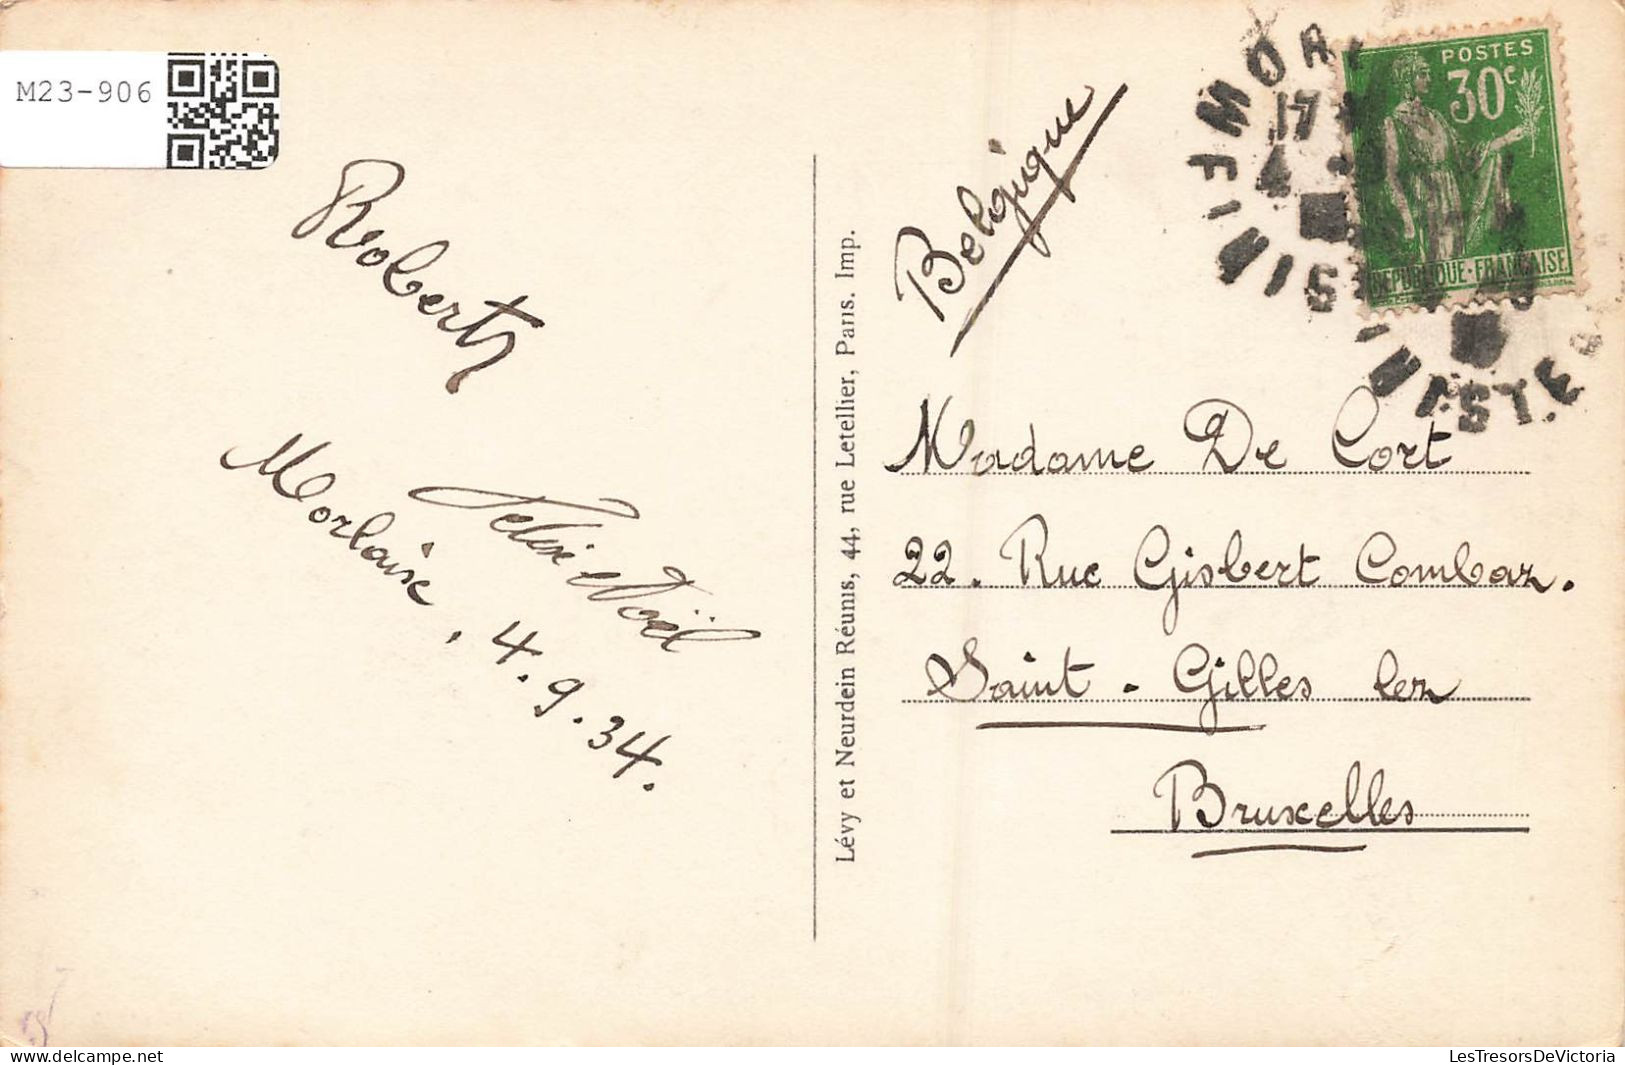 M23-906
Robert
Morlaix, 4.9.34.
Felix Noël
Lévy et Neurdein Réunis, 44, rue Letellier, Paris. Imp.
Belgique
POSTES
30c
REPUBLIQUE·FRANÇAISE
17
4
FINIST
Madame De Cort
22. Rue Gisbert Combaz.
Saint-Gilles lez
Bruxelles
LesTresorsDeVictoria